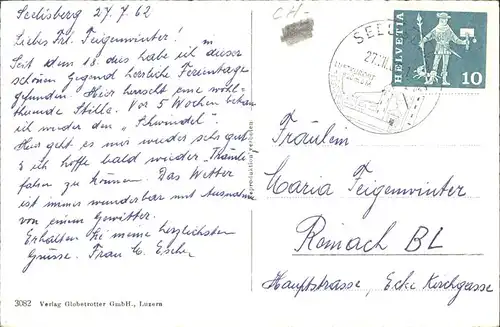 Seelisberg 27.7.62
Liebes Frl. Feigenwinter!
Seit dem 18. dies habe ich in dieser
schönen Gegend herrliche Ferientage
gefunden. Hier herrscht eine wohl-
tuende Stille. Vor 5 Wochen bekam
ich wieder den "Schwindel".
Hier geht es mir wieder sehr gut
& ich hoffe bald wieder
fahren zu können. Das Wetter
ist immer wunderbar mit Ausnahme
von einem Gewitter.
Erhalten Sie meine herzlichsten
Grüsse. Frau C. Escher
3082 Verlag Globetrotter GmbH., Luzern
CH-
HELVETIA
10
Fräulein
Maria Feigenwinter
Reinach BL
Hauptstrasse, Ecke Kirchgasse